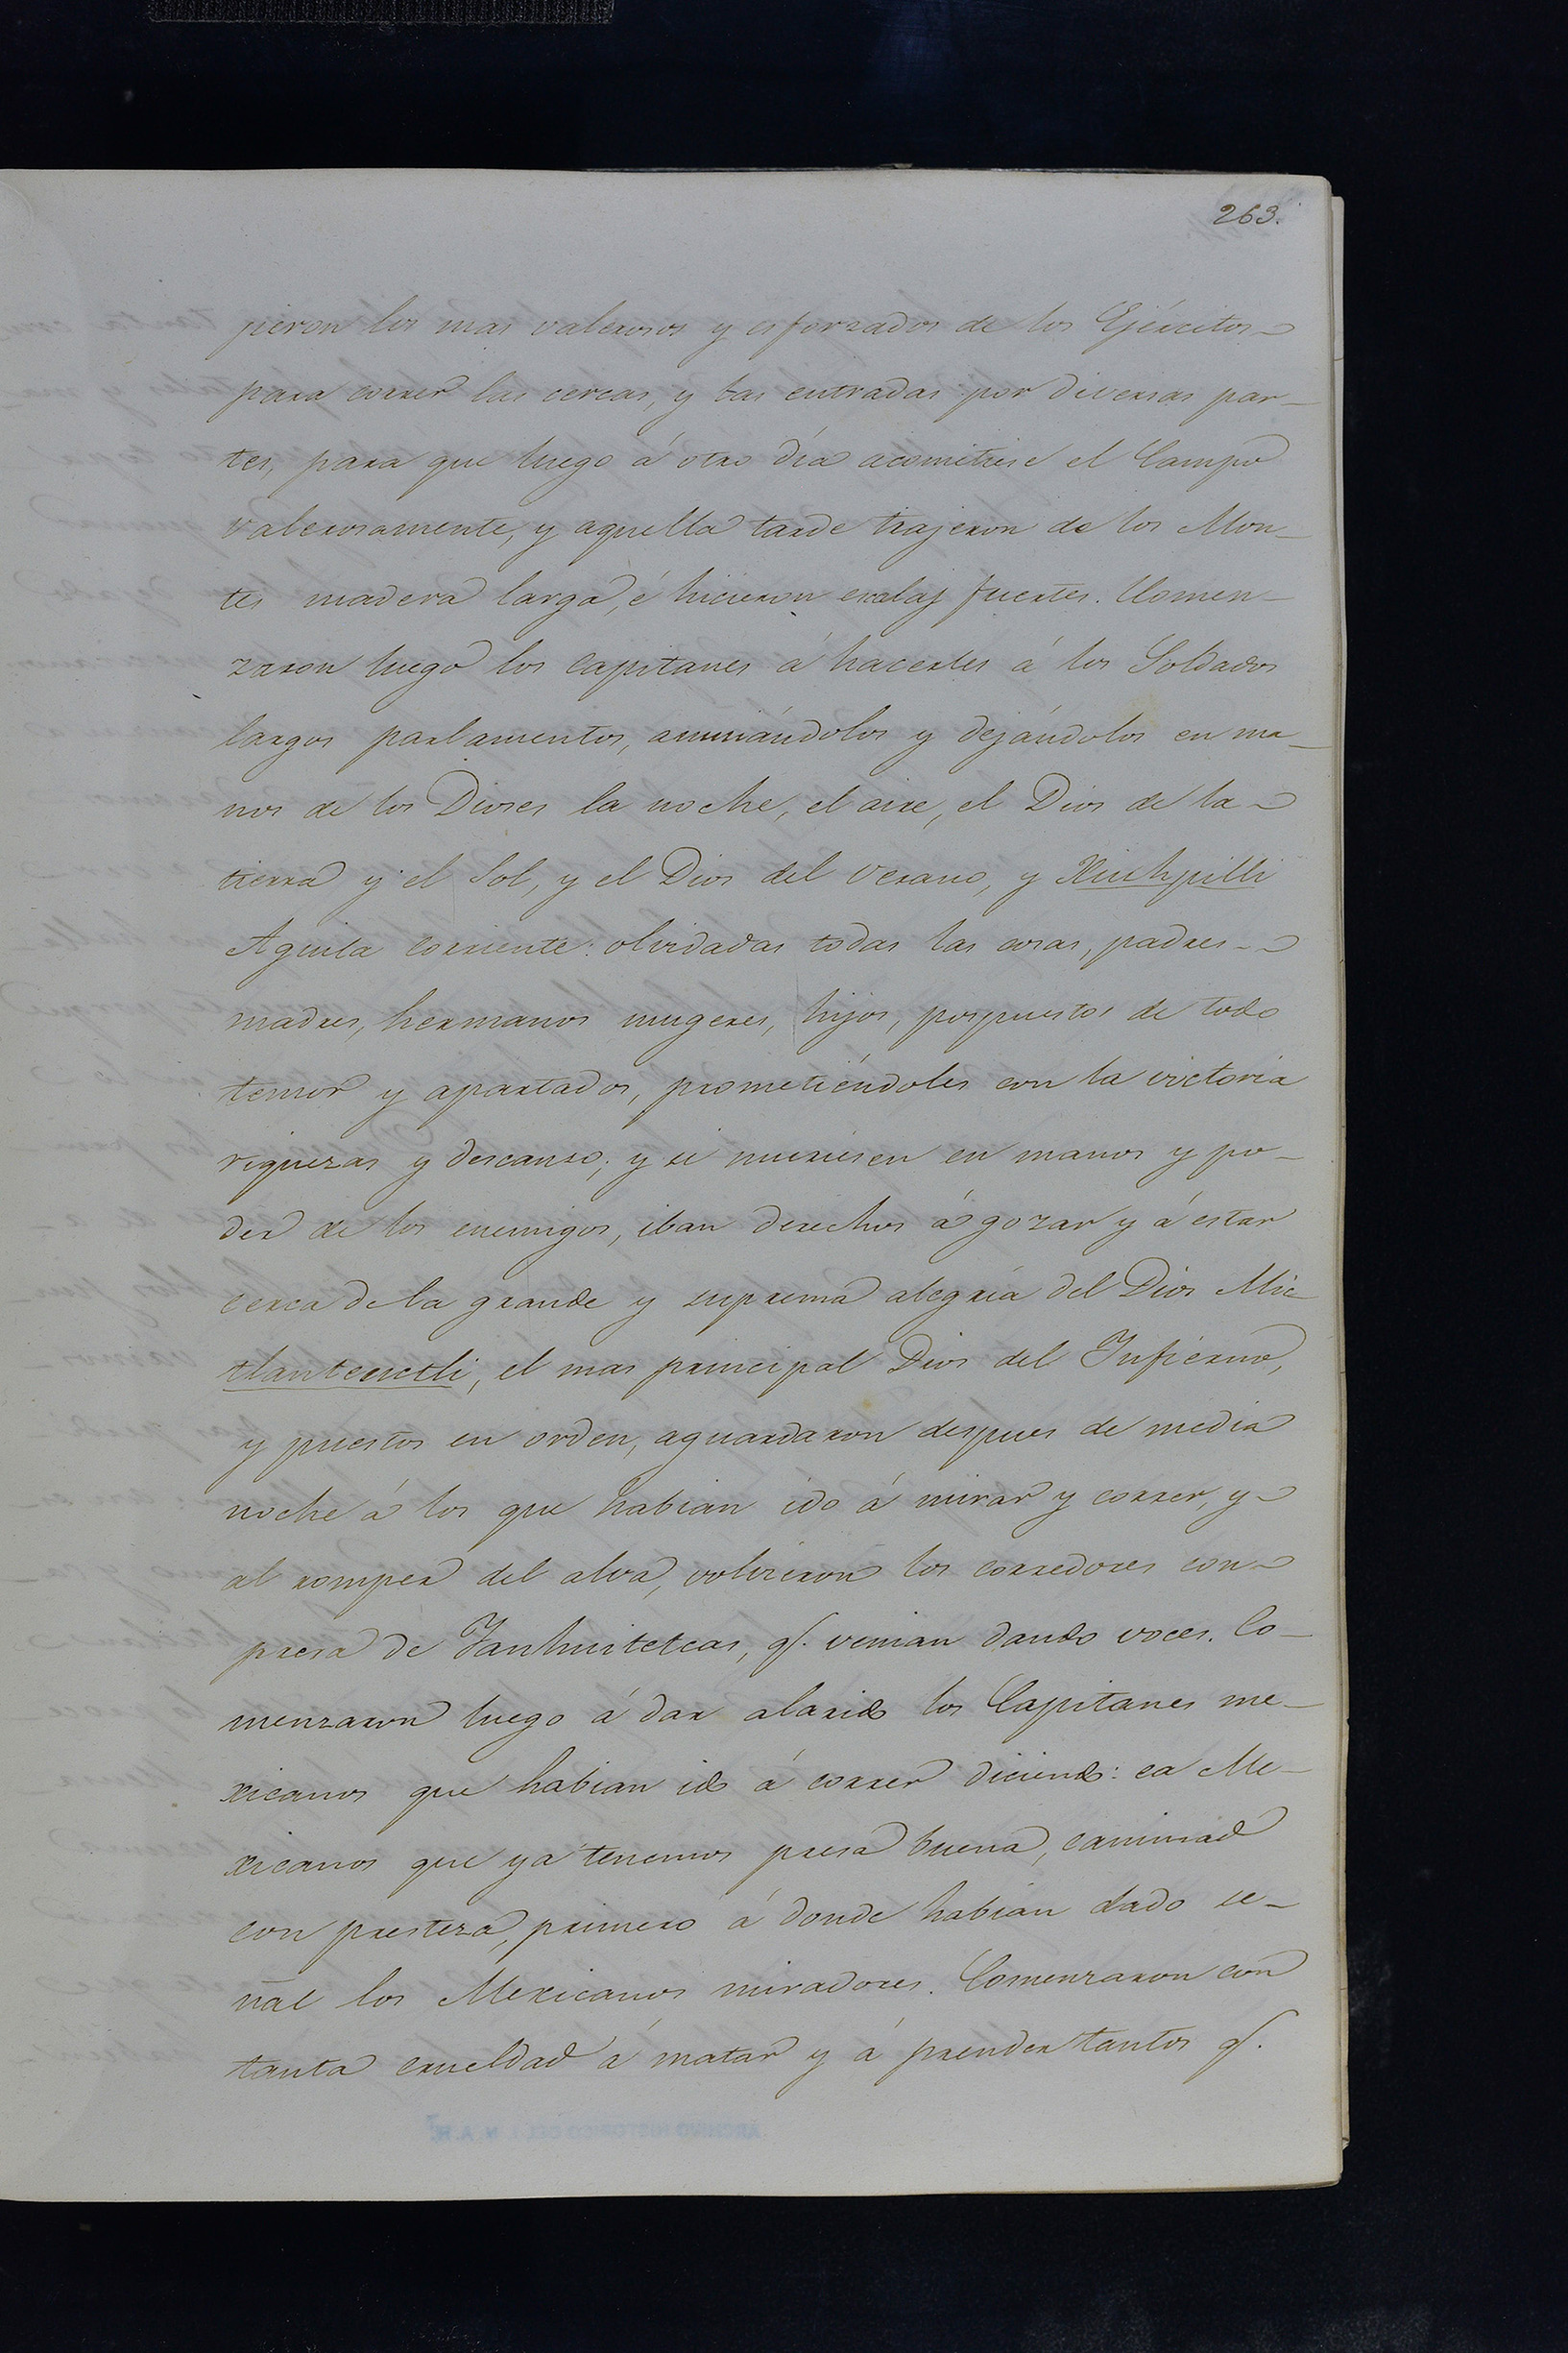 263.
jieron los mas valerosos y esforzados de los Ejércitos
para correr las cercas, y las entradas por diversas par-
tes, para que luego á otro día acometiese el Campo
valerosamente, y aquella tarde trajeron de los Mon-
tes madera larga, é hicieron escalas fuertes. Comen-
zaron luego los Capitanes á hacerles á los Soldados
largos parlamentos, animándolos y dejándolos en ma-
nos de los Dioses la noche, el aire, el Dios de la
tierra y el Sol, y el Dios del verano, y Xiuhpilli
Aguila corriente: olvidadas todas las cosas, padres
madres, hermanos mugeres, hijos, pospuestos de todo
temor y apartados, prometiéndoles con la victoria
riquezas y descanso; y si muriesen en manos y po-
der de los enemigos, iban derechos á gozar y á estar
cerca de la grande y suprema alegría del Dios Mic-
tlanteuctli, el mas principal Dios del Infierno,
y puestos en orden, aguardaron despues de media
noche á los que habian ido á mirar y correr, y
al romper del alva, volvieron los corredores con
presa de Yanhuitetcas, q. venian dando voces. Co-
menzaron luego á dar alarido los Capitanes me-
xicanos que habian ido á correr diciendo: ea Me-
xicanos que ya tenemos presa buena, caminad
con presteza, primero á donde habian dado se-
ñal los Mexicanos miradores. Comenzaron con
tanta crueldad á matar y á prender tantos q.